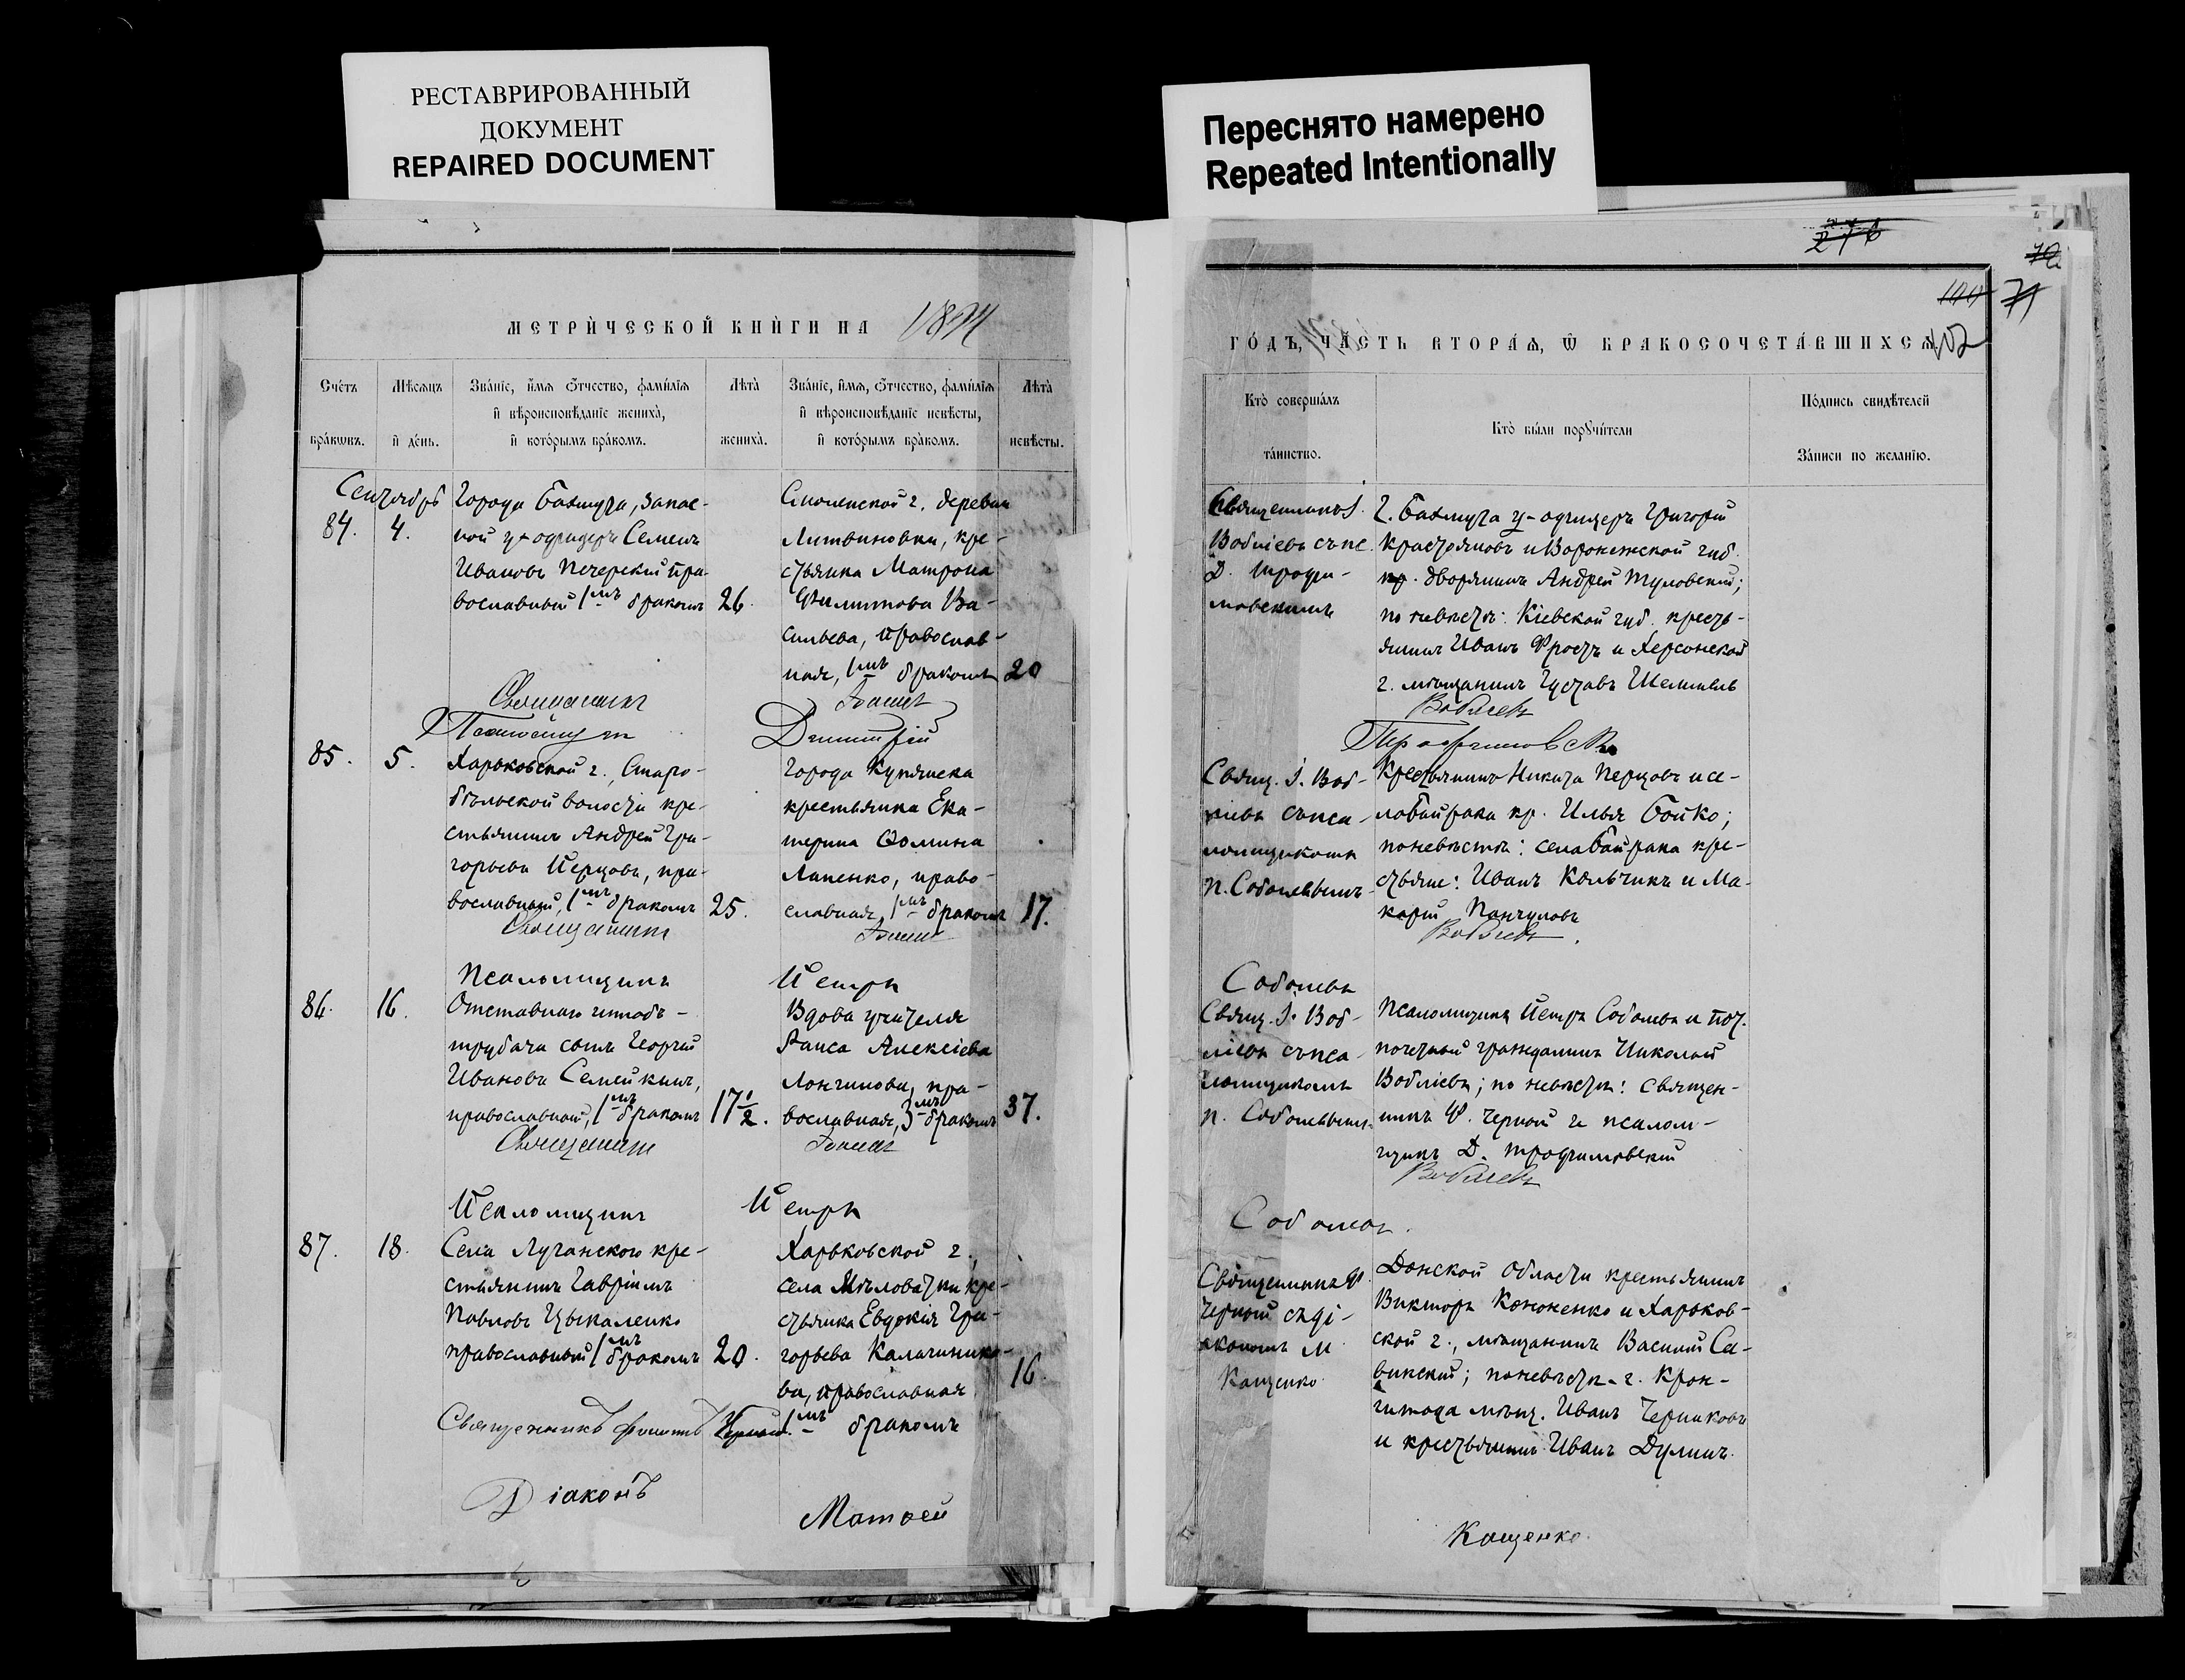 РЕСТАВРИРОВАННЫЙ
ДОКУМЕНТ
REPAIRED DOCUMENT
Переснято намерено
Repeated Intentionally
276
МЕТРИЧЕСКОЙ КНИГИ НА
Счетъ браковъ.
Мѣсяцъ и день.
Званіе, имя, отчество, фамилія
и вѣроисповѣданіе жениха,
и которымъ бракомъ.
Лѣта
жениха.
Званіе, имя, отчество, фамилія
и вѣроисповѣданіе невѣсты,
и которымъ бракомъ.
Лѣта
невѣсты.
Сентябрь
84.
4.
Города Бахмута, запас-
ной у-офицеръ Семенъ
Ивановъ Печерскій пра-
вославный 1мъ бракомъ
26.
Смоленской г. деревни
Литвиновки, кре-
стьянка Матрона
Филиппова Ва-
сильева, православ-
ная, 1мъ бракомъ
20
Священникъ
Іоаннъ
Димитрій
85.
5.
Харьковской г., Старо-
бѣльской волости кре-
стьянинъ Андрей Гри-
горьевъ Перцовъ, пра-
вославный, 1мъ бракомъ
25.
Города Купянска
крестьянка Ека-
терина Фомина
Лапенко, право-
славная, 1мъ бракомъ
17.
Священникъ
Іоаннъ
Псаломщикъ
Петръ
86.
16.
Отставного штабъ-
трубача сынъ Георгій
Ивановъ Семейкинъ,
православный, 1мъ бракомъ
17½.
Вдова учителя
Раиса Алексіева
Лонгинова, пра-
вославная, 3мъ бракомъ
37.
Священникъ
Іоаннъ
Псаломщикъ
Петръ
87.
18.
Села Луганского кре-
стьянинъ Гавріилъ
Павловъ Цыкаленко
православный 1мъ бракомъ
20.
Харьковской г.
села Мѣловатки кре-
стьянка Евдокія Гри-
горьева Калачинико-
ва, православная
1мъ бракомъ
16.
Священникъ Филиппъ Черный.
Діаконъ
Матѳей
ГОДЪ, ЧАСТЬ ВТОРАЯ, Ѿ БРАКОСОЧЕТАВШИХСЯ.
102
Кто совершалъ
таинство.
Кто были поручители
Подпись свидѣтелей
Записи по желанію.
Священникъ І.
Воблѣевъ съ пс.
Д. Трофи-
мовскимъ
Г. Бахмута у-офицеръ Григорій
и Воронежской губ.
дворянинъ Андрей Туловскій;
по невѣстѣ: Кіевской губ. кресть-
янинъ Иванъ Фростъ и Херсонской
г. мѣщанинъ Густавъ
Воблѣевъ
Трофимовскій
Свящ. І. Воб-
лѣевъ съ пса-
ломщикомъ
П. Соболевымъ
Крестьянинъ Никита Перцовъ и се-
ла Байрака кр. Илья Бойко;
по невѣстѣ: села Байрака кре-
стьяне: Иванъ Кольчикъ и Ма-
карій Панчуловъ
Воблѣевъ
Соболевъ
Свящ. І. Воб-
лѣевъ съ пса-
ломщикомъ
П. Соболевымъ
Псаломщикъ Петръ Соболевъ и пот.
почетный гражданинъ Николай
Воблѣевъ; по невѣстѣ: священ-
никъ Ф. Черной и псалом-
щикъ Д. Трофимовскій
Воблѣевъ
Соболевъ.
Священникъ Ф.
Черный съ ді-
акономъ М.
Кащенко.
Донской Области крестьянинъ
Викторъ Кононенко и Харьков-
ской г., мѣщанинъ Василій Са-
винскій; по невѣстѣ г. Крон-
штада мѣщ. Иванъ Черниковъ
и крестьянинъ Иванъ Дулинъ.
Кащенко.